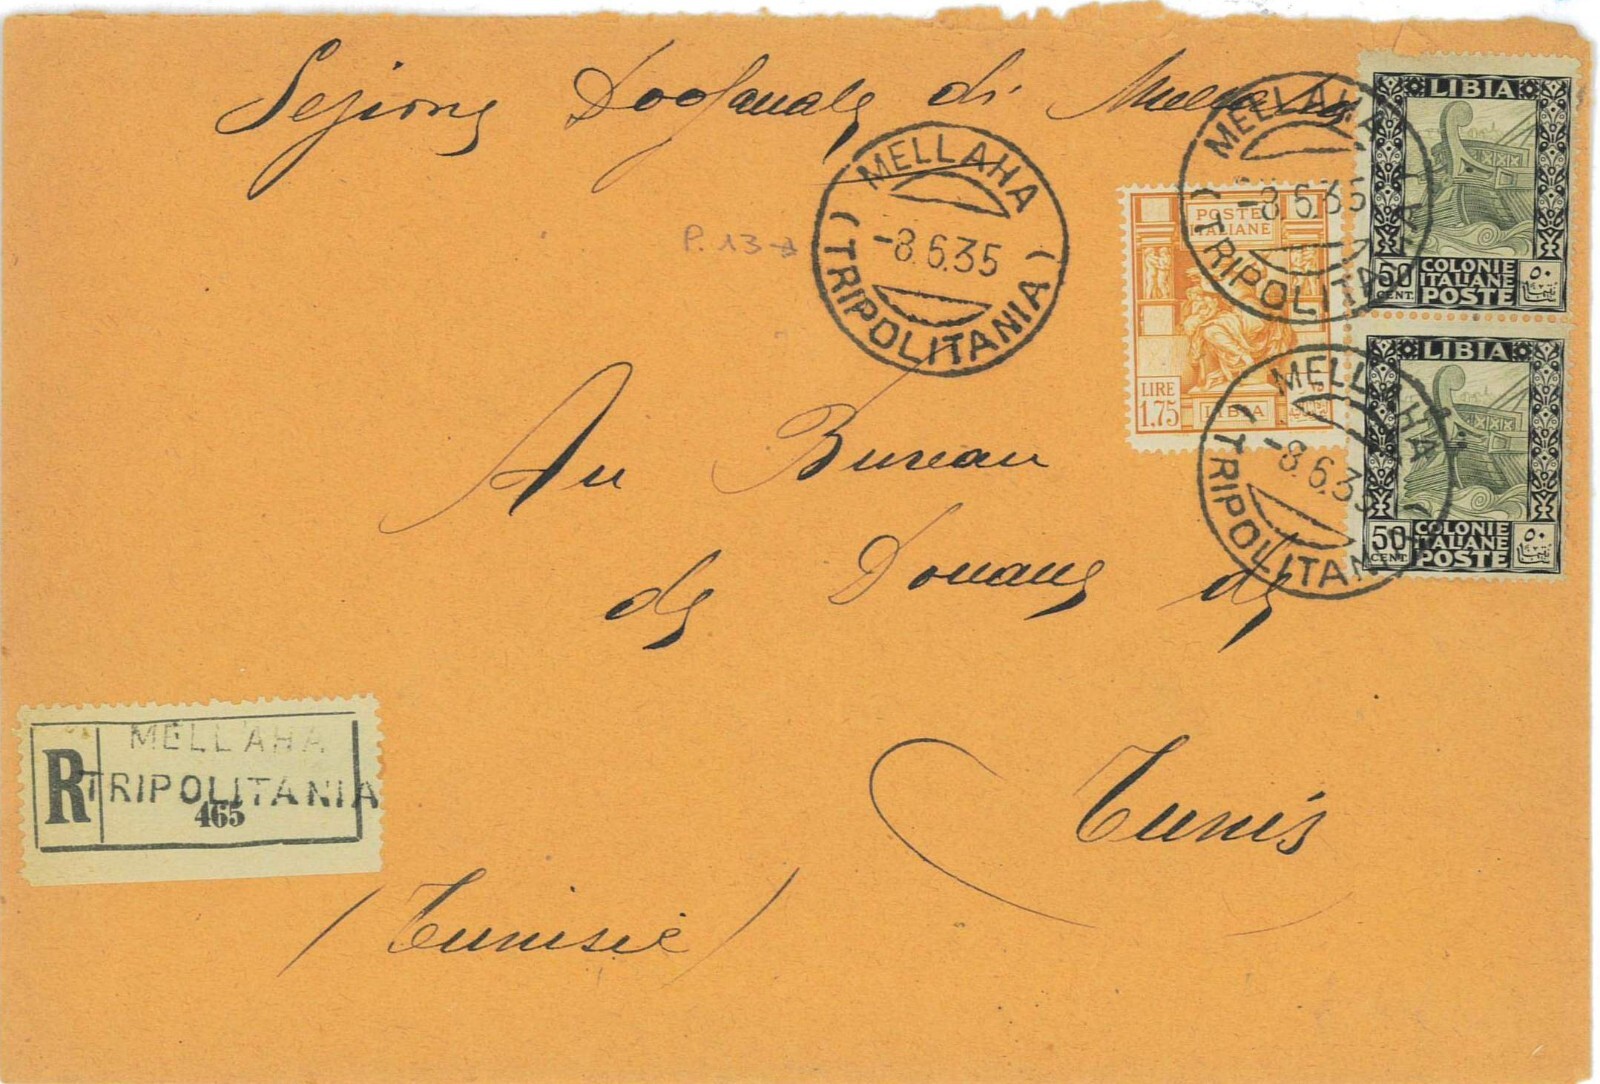 Sezione Doganale di Mellaha
MELLAHA
-8.6.35
(TRIPOLITANIA)
P. 13
MELLAHA
-8.6.35
(TRIPOLITANIA)
LIBIA
50
CENT.
COLONIE
ITALIANE
POSTE
٥٠
POSTE
ITALIANE
LIRE
1.75
LIBIA
MELLAHA
-8.6.35
(TRIPOLITANIA
LIBIA
50
CENT.
COLONIE
ITALIANE
POSTE
٥٠
Au Bureau
de Douane de
Tunis
(Tunisie)
R
MELLAHA
TRIPOLITANIA
465